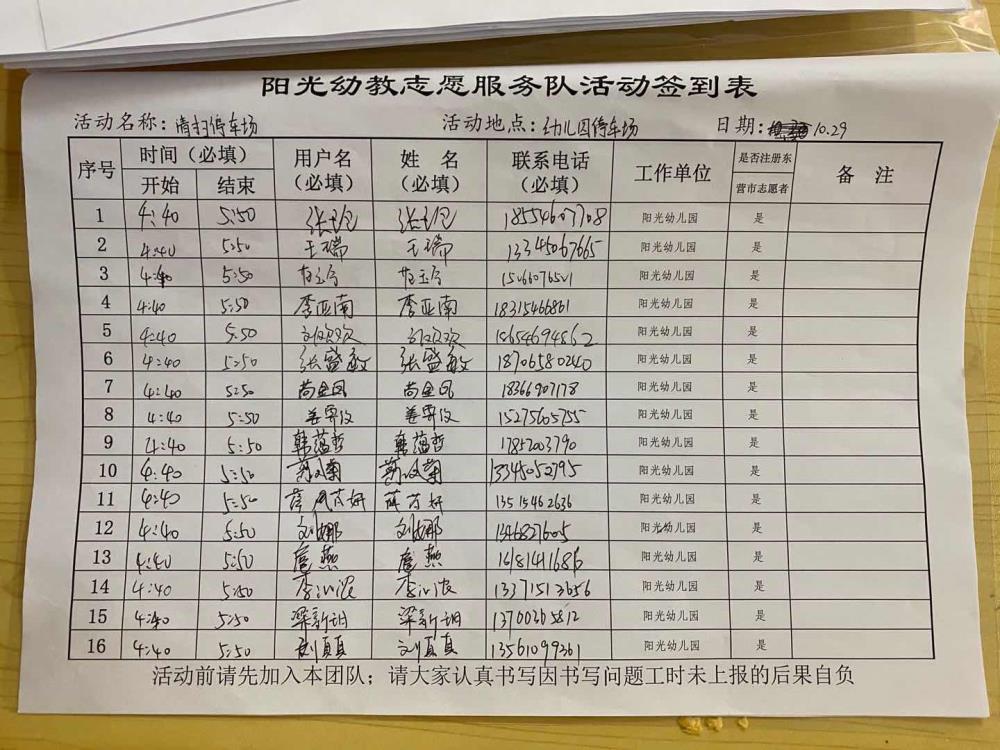 阳光幼教志愿服务队活动签到表
活动名称：清扫停车场 活动地点：幼儿园停车场 日期：10.29
序号 时间（必填） 用户名（必填） 姓名（必填） 联系电话（必填） 工作单位 是否注册东营市志愿者 备注
开始 结束
1 4:40 5:50 18554607708 阳光幼儿园 是
2 4:40 5:50 王瑞 王瑞 13345067665 阳光幼儿园 是
3 4:40 5:50 阳光幼儿园 是
4 4:40 5:50 李亚南 李亚南 18315466861 阳光幼儿园 是
5 4:40 5:50 刘欢欢 刘欢欢 15654694862 阳光幼儿园 是
6 4:40 5:50 张盛敏 张盛敏 18706580240 阳光幼儿园 是
7 4:40 5:50 尚金凤 尚金凤 18366907178 阳光幼儿园 是
8 4:40 5:50 15275605755 阳光幼儿园 是
9 4:40 5:50 韩蕴哲 韩蕴哲 17852003790 阳光幼儿园 是
10 4:40 5:50 13345052795 阳光幼儿园 是
11 4:40 5:50 薛芳妍 13515462636 阳光幼儿园 是
12 4:40 5:50 刘娜 刘娜 阳光幼儿园 是
13 4:40 5:50 扈燕 扈燕 阳光幼儿园 是
14 4:40 5:50 13371513656 阳光幼儿园 是
15 4:40 5:50 梁新玥 梁新玥 13700365812 阳光幼儿园 是
16 4:40 5:50 刘真真 刘真真 13561099361 阳光幼儿园 是
活动前请先加入本团队；请大家认真书写因书写问题工时未上报的后果自负